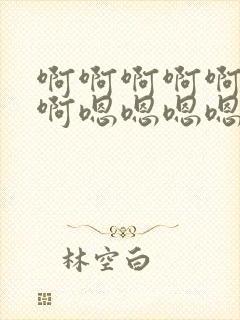 啊啊啊啊啊
啊嗯嗯嗯嗯
林空白